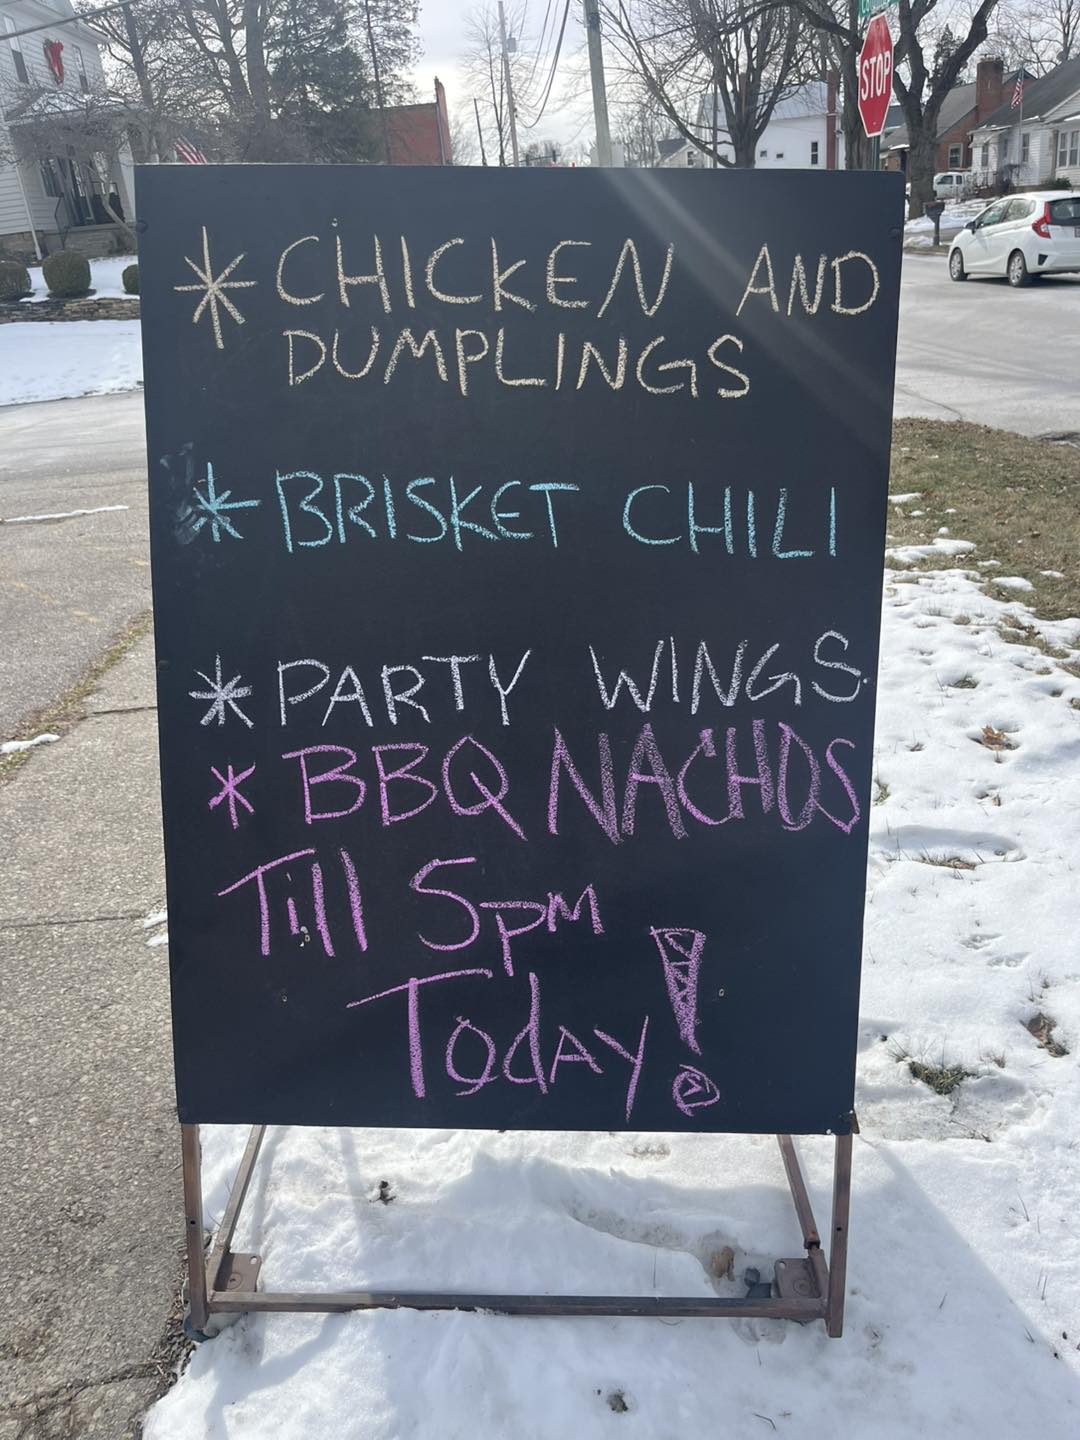 * CHICKEN AND
DUMPLINGS
* BRISKET CHILI
* PARTY WINGS
* BBQ NACHOS
Till 5pm
Today!
STOP